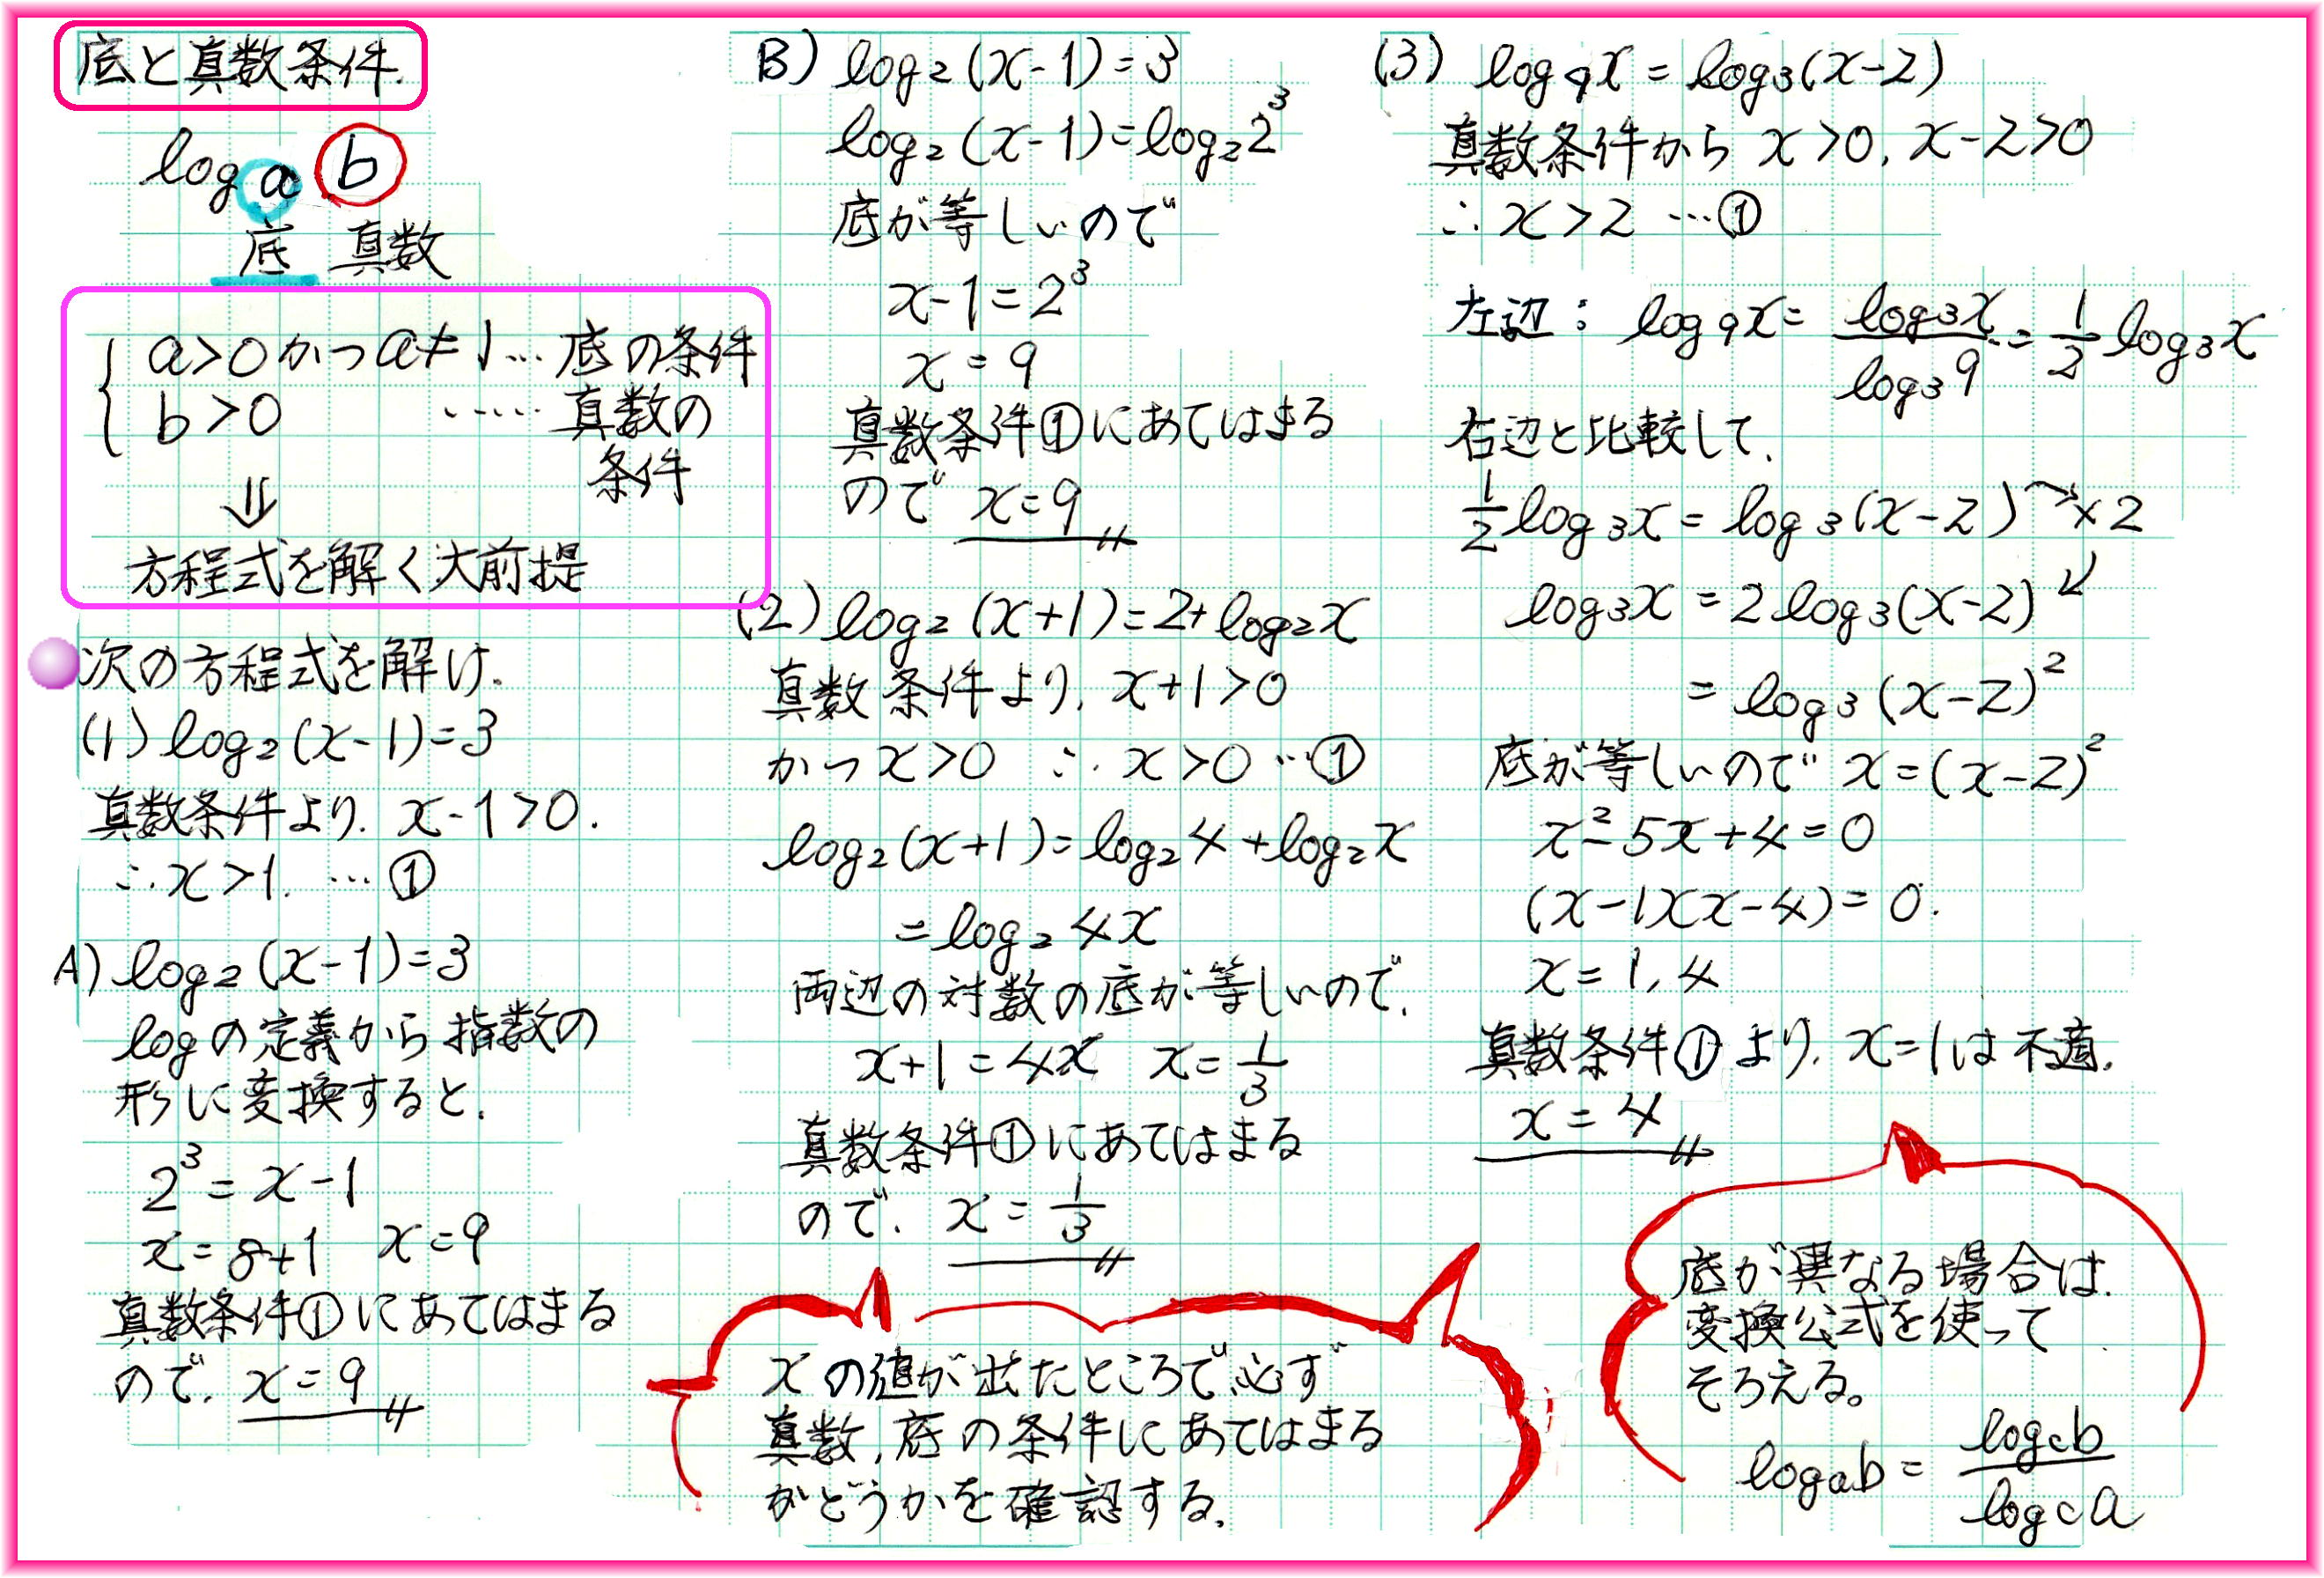 底と真数条件.
log a b
底 真数
a>0かつa≠1… 底の条件
b>0 …… 真数の
条件
⇓
方程式を解く大前提
次の方程式を解け.
(1) log₂(x-1)=3
真数条件より. x-1>0.
∴x>1. … ①
A) log₂(x-1)=3
logの定義から指数の
形に変換すると.
2³=x-1
x=8+1 x=9
真数条件①にあてはまる
ので. x=9
B) log₂(x-1)=3
log₂(x-1)=log₂2³
底が等しいので
x-1=2³
x=9
真数条件①にあてはまる
ので x=9
(2) log₂(x+1)=2+log₂x
真数条件より. x+1>0
かつx>0 ∴x>0 …①
log₂(x+1)=log₂4+log₂x
=log₂4x
両辺の対数の底が等しいので.
x+1=4x x=1/3
真数条件①にあてはまる
ので. x=1/3
xの値が出たところで必ず
真数,底の条件にあてはまる
かどうかを確認する.
(3) log₉x=log₃(x-2)
真数条件から x>0, x-2>0
∴x>2 …①
左辺: log₉x=log₃x/log₃9=1/2 log₃x
右辺と比較して.
1/2 log₃x=log₃(x-2) ×2
log₃x=2log₃(x-2)
=log₃(x-2)²
底が等しいので x=(x-2)²
x²-5x+4=0
(x-1)(x-4)=0.
x=1,4
真数条件①より. x=1は不適.
x=4
底が異なる場合は.
変換公式を使って
そろえる。
logₐb=log_c b/log_c a